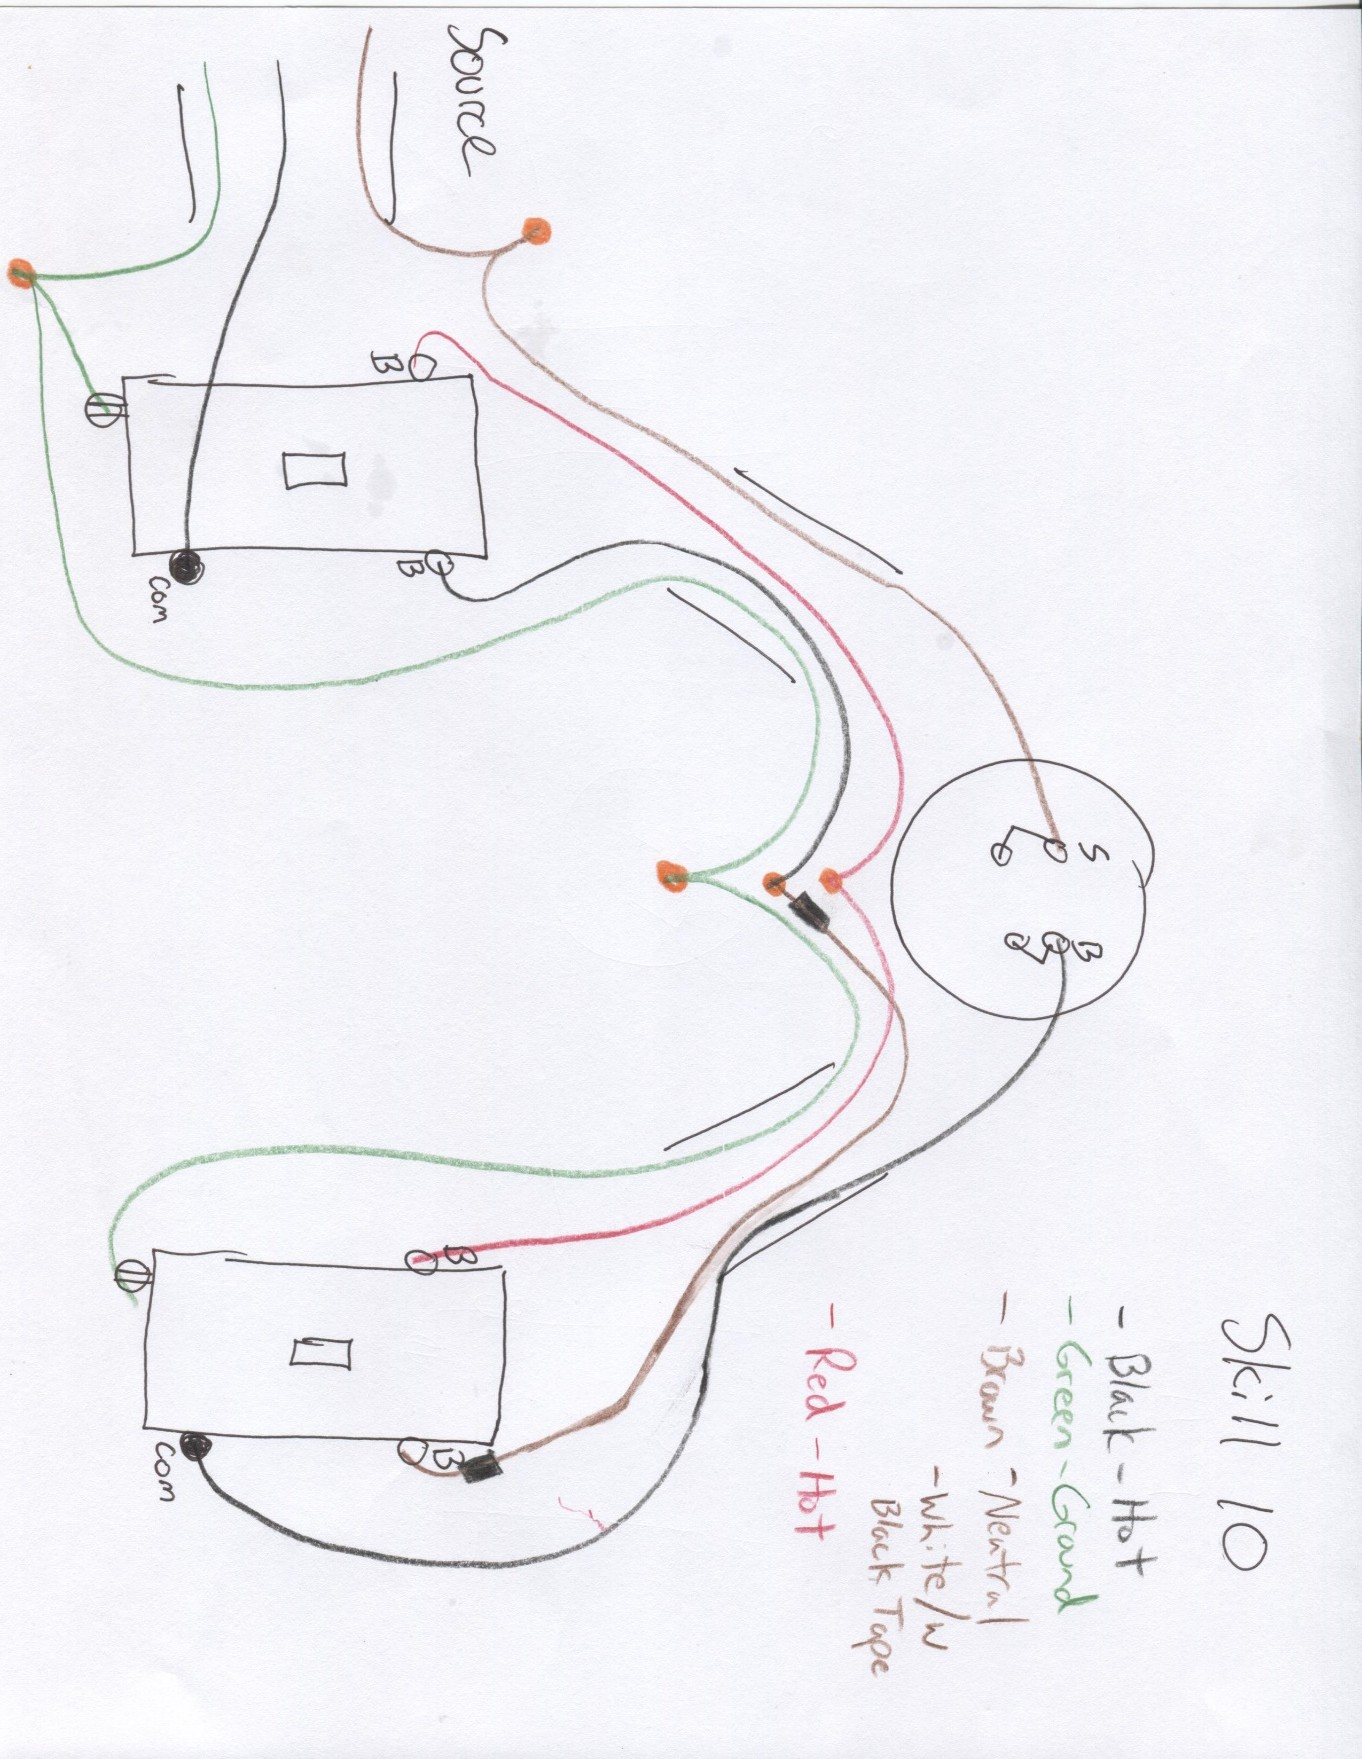 Skill 10
- Black - Hot
- Green - Ground
- Brown - Neutral
- White/w
Black Tape
- Red - Hot
Source
B
B
com
S
B
B
B
com